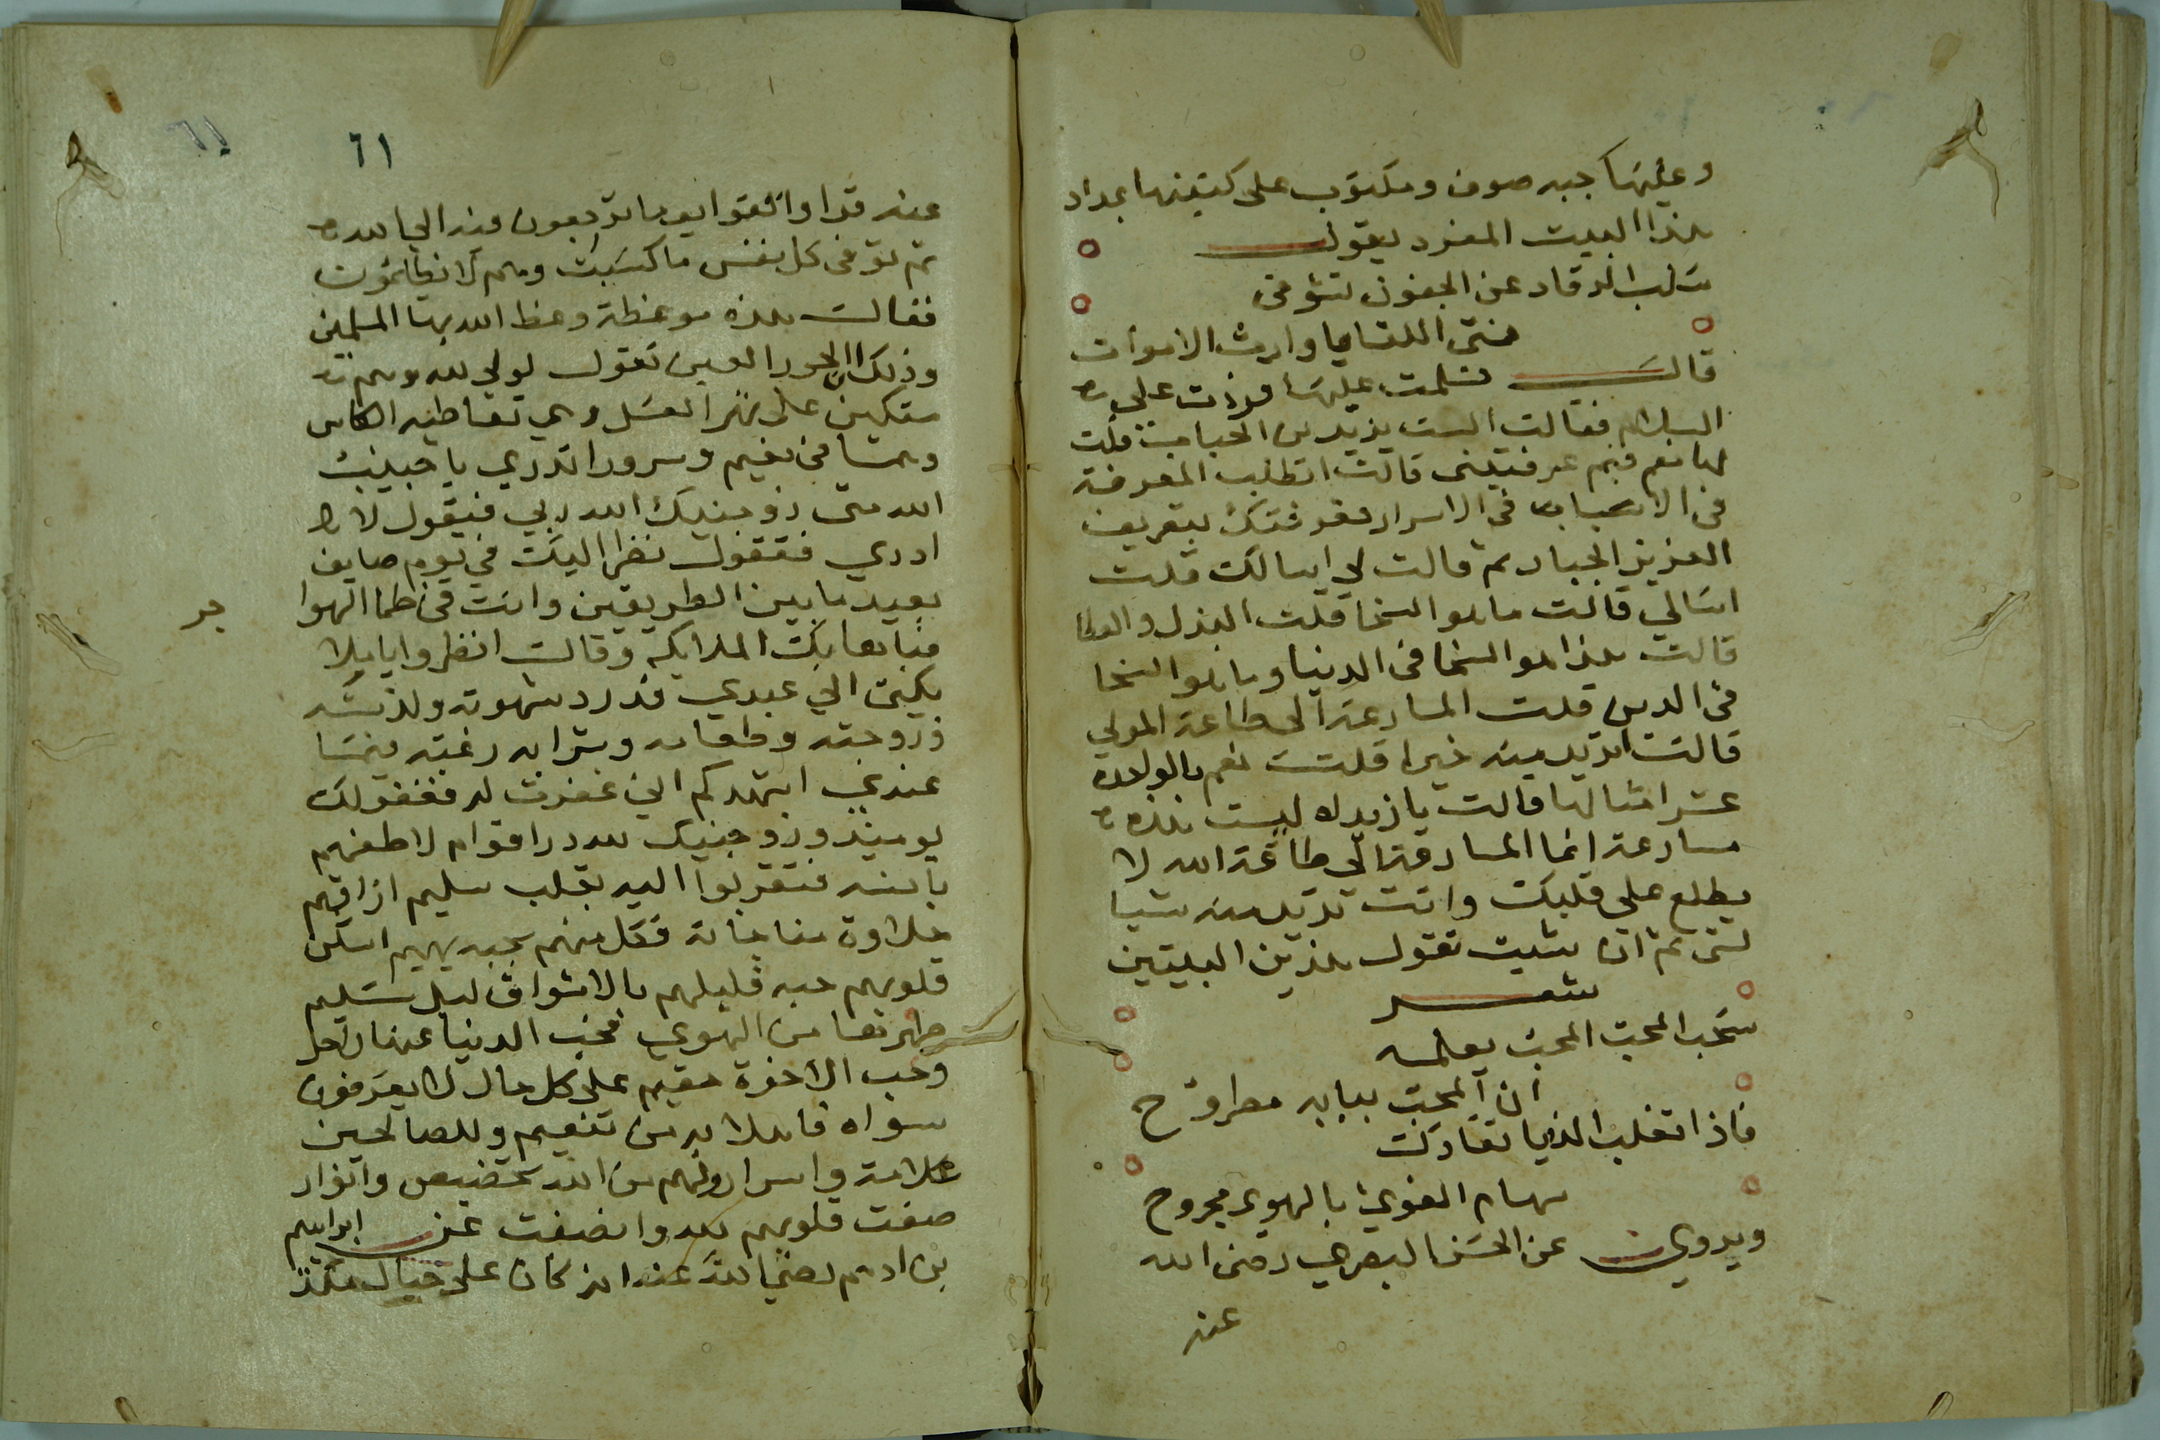 وعليها جبه صوف ومكتوب على كتفيها بمداد
هذا البيت المفرد يقول
سلب الرقاد عن الجفون تشوقى
فمتى اللقايا وارث الاموات
قالــ فسلمت عليها فردت على
السلام فقالت الست يزيد بن الحباب قلت
لها نعم فبم عرفتينى قالت اتطلب المعرفة
فى الاسباب فى الاسرار فعرفتك بتعريف
العزيز الجبار ثم قالت لي اسالك قلت
اسالي قالت ما هو السخا قلت البذل والعطا
قالت هذا هو السخا فى الدنيا وما هو السخا
فى الدين قلت المسارعة الى طاعة المولي
قالت اتريد منه خيرا قلت نعم بالواحده
عشر امثالها قالت يا زيد ليست هذه
مسارعة انما المسارعة الى طاعة الله لا
يطلع على قلبك وانت تريد منه شيا
لشى ثم ان شيت تقول هذين البيتين
شعــر
سحب المحب المحب يعلمه
ان المحب ببابه مطروح
فاذا تقلب الدنيا تعاركت
سهام الغوي بالهوي مجروح
ويروي عن الحسن البصري رضى الله
عنه
٦١
عنه قرا واتقوا يوما ترجعون فيه الى الله
ثم توفى كل نفس ما كسبت وهم لا يظلمون
فقالت هذه موعظة وعظ الله بها المسلمين
وذلك ان الحور العين تقول لولى لله وهم
متكين على نهر العسل وهي تعاطيه الكاس
وهما فى نعيم وسرور اتدري يا حبيب
الله متى زوجنيك الله ربي فيقول لا
ادري فتقول نظر اليك في يوم صايف
بعيد ما بين الطريقين وانت فى ظما الهوا
حر
فباها بك الملايكه وقالت انظروا يا ملا
يكتى الى عبدي قد رد شهوته ولذته
وزوجته وطعامه وشرابه رغبة فيما
عندي اشهدكم انى غفرت له فغفر لك
يوميذ وزوجنيك لله در اقوام لاطفهم
بانسه فتقربوا اليه بقلب سليم ارزاقهم
حلاوة مناجاته فكل منهم بحبه يهيم اسكن
قلوبهم حبه فليلهم بالاشواق ليل سليم
طهرها من الهوي فحب الدنيا عنها رحل
وحب الاخرة مقيم على كل حال لا يعرفون
سواه فاهلا بهم من تنعيم وللصالحين
علامة واسرار ولهم من الله تخصيص وانوار
صفت قلوبهم لله وانصفت عن ابراهيم
بن ادهم رضى الله عنه انه كان على جبال مكه